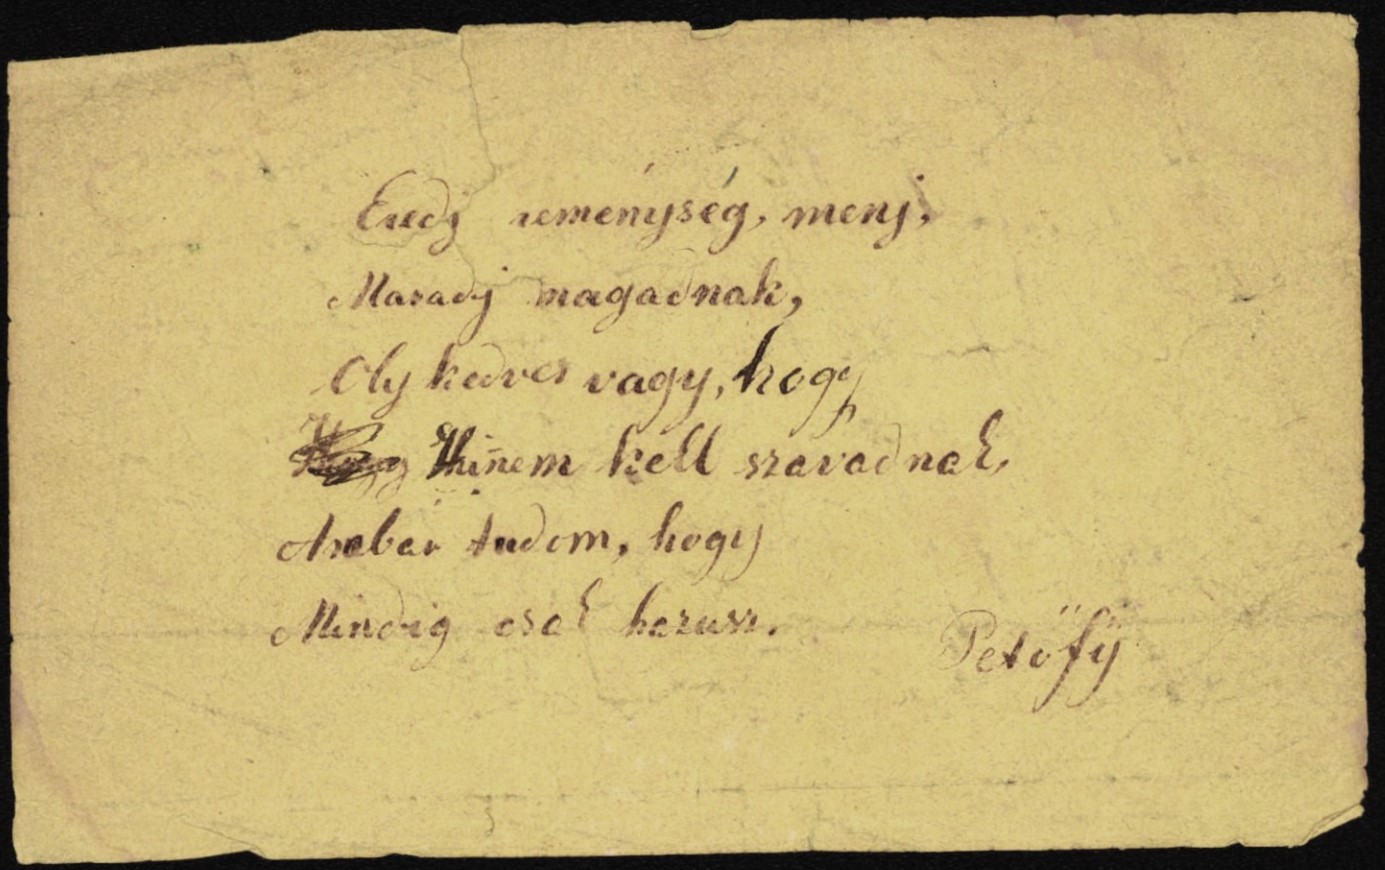 Eredj reménység, menj,
Maradj magadnak,
Oly kedves vagy, hogy
Hinnem kell szavadnak,
Ambár tudom, hogy
Mindig csak hazusz.
Petőfÿ